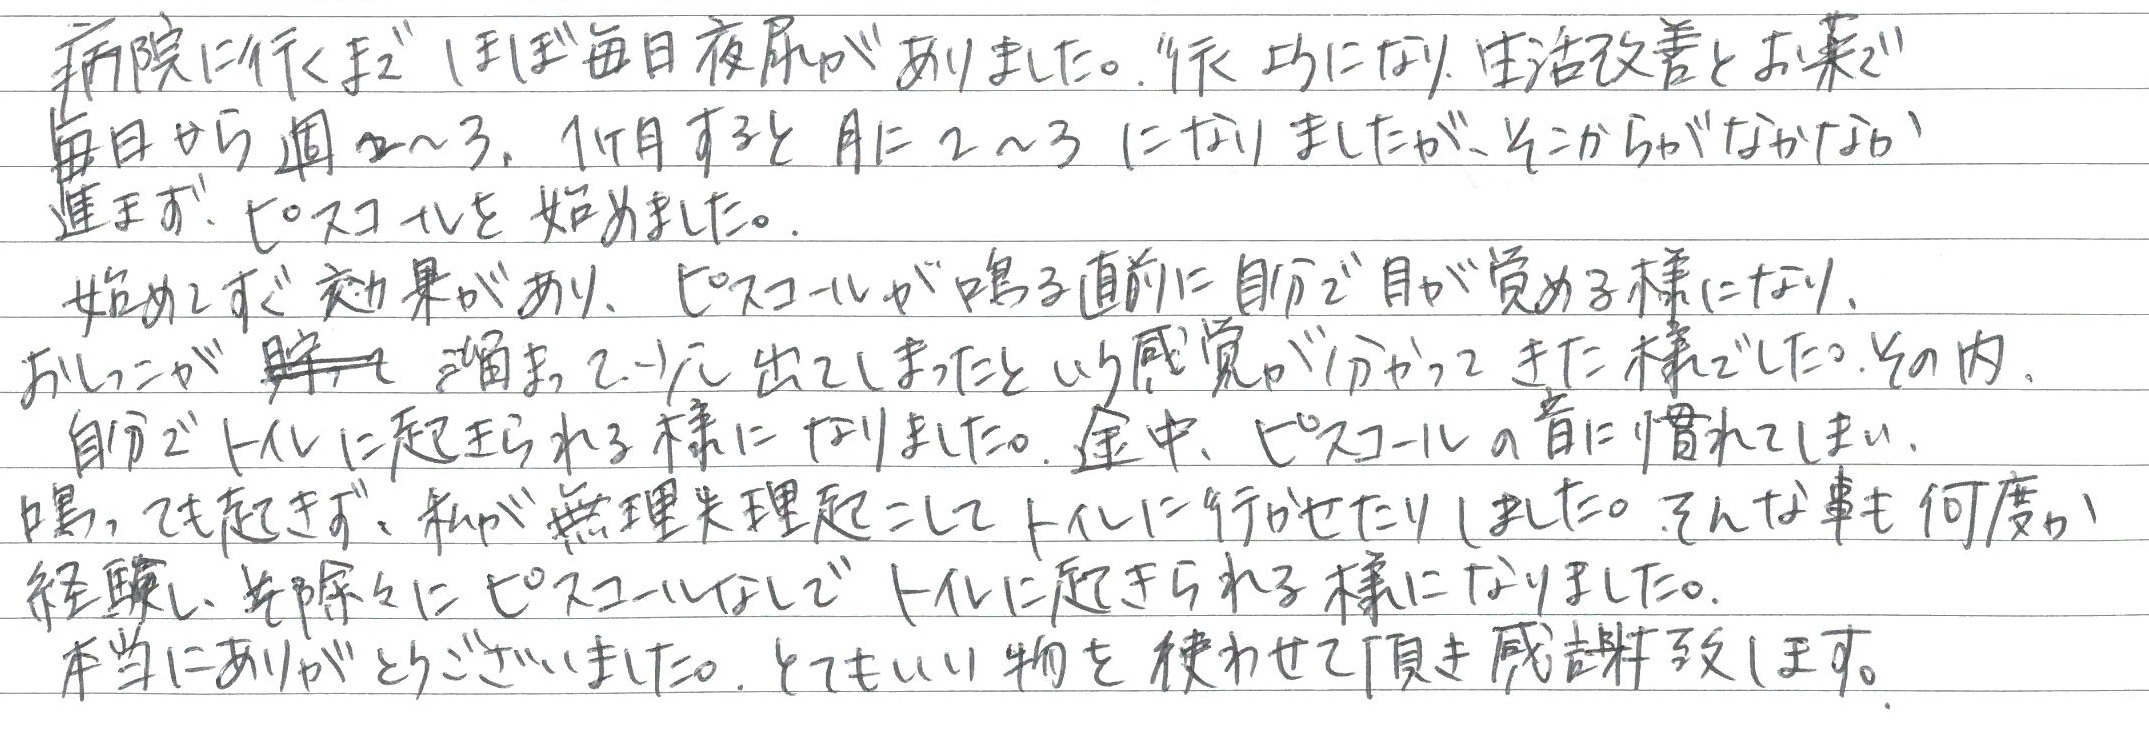 病院に行くまでほぼ毎日夜尿がありました。行くようになり、生活改善とお薬で
毎日から週2〜3、1ヶ月すると月に2〜3になりましたが、そこからがなかなか
進まず、ピスコールを始めました。
始めてすぐ効果があり、ピスコールが鳴る直前に自分で目が覚める様になり、
おしっこが溜まって、少し出てしまったという感覚が分かってきた様でした。その内、
自分でトイレに起きられる様になりました。途中、ピスコールの音に慣れてしまい、
鳴っても起きず、私が無理矢理起こしてトイレに行かせたりしました。そんな事も何度か
経験し、徐々にピスコールなしでトイレに起きられる様になりました。
本当にありがとうございました。とてもいい物を使わせて頂き感謝致します。